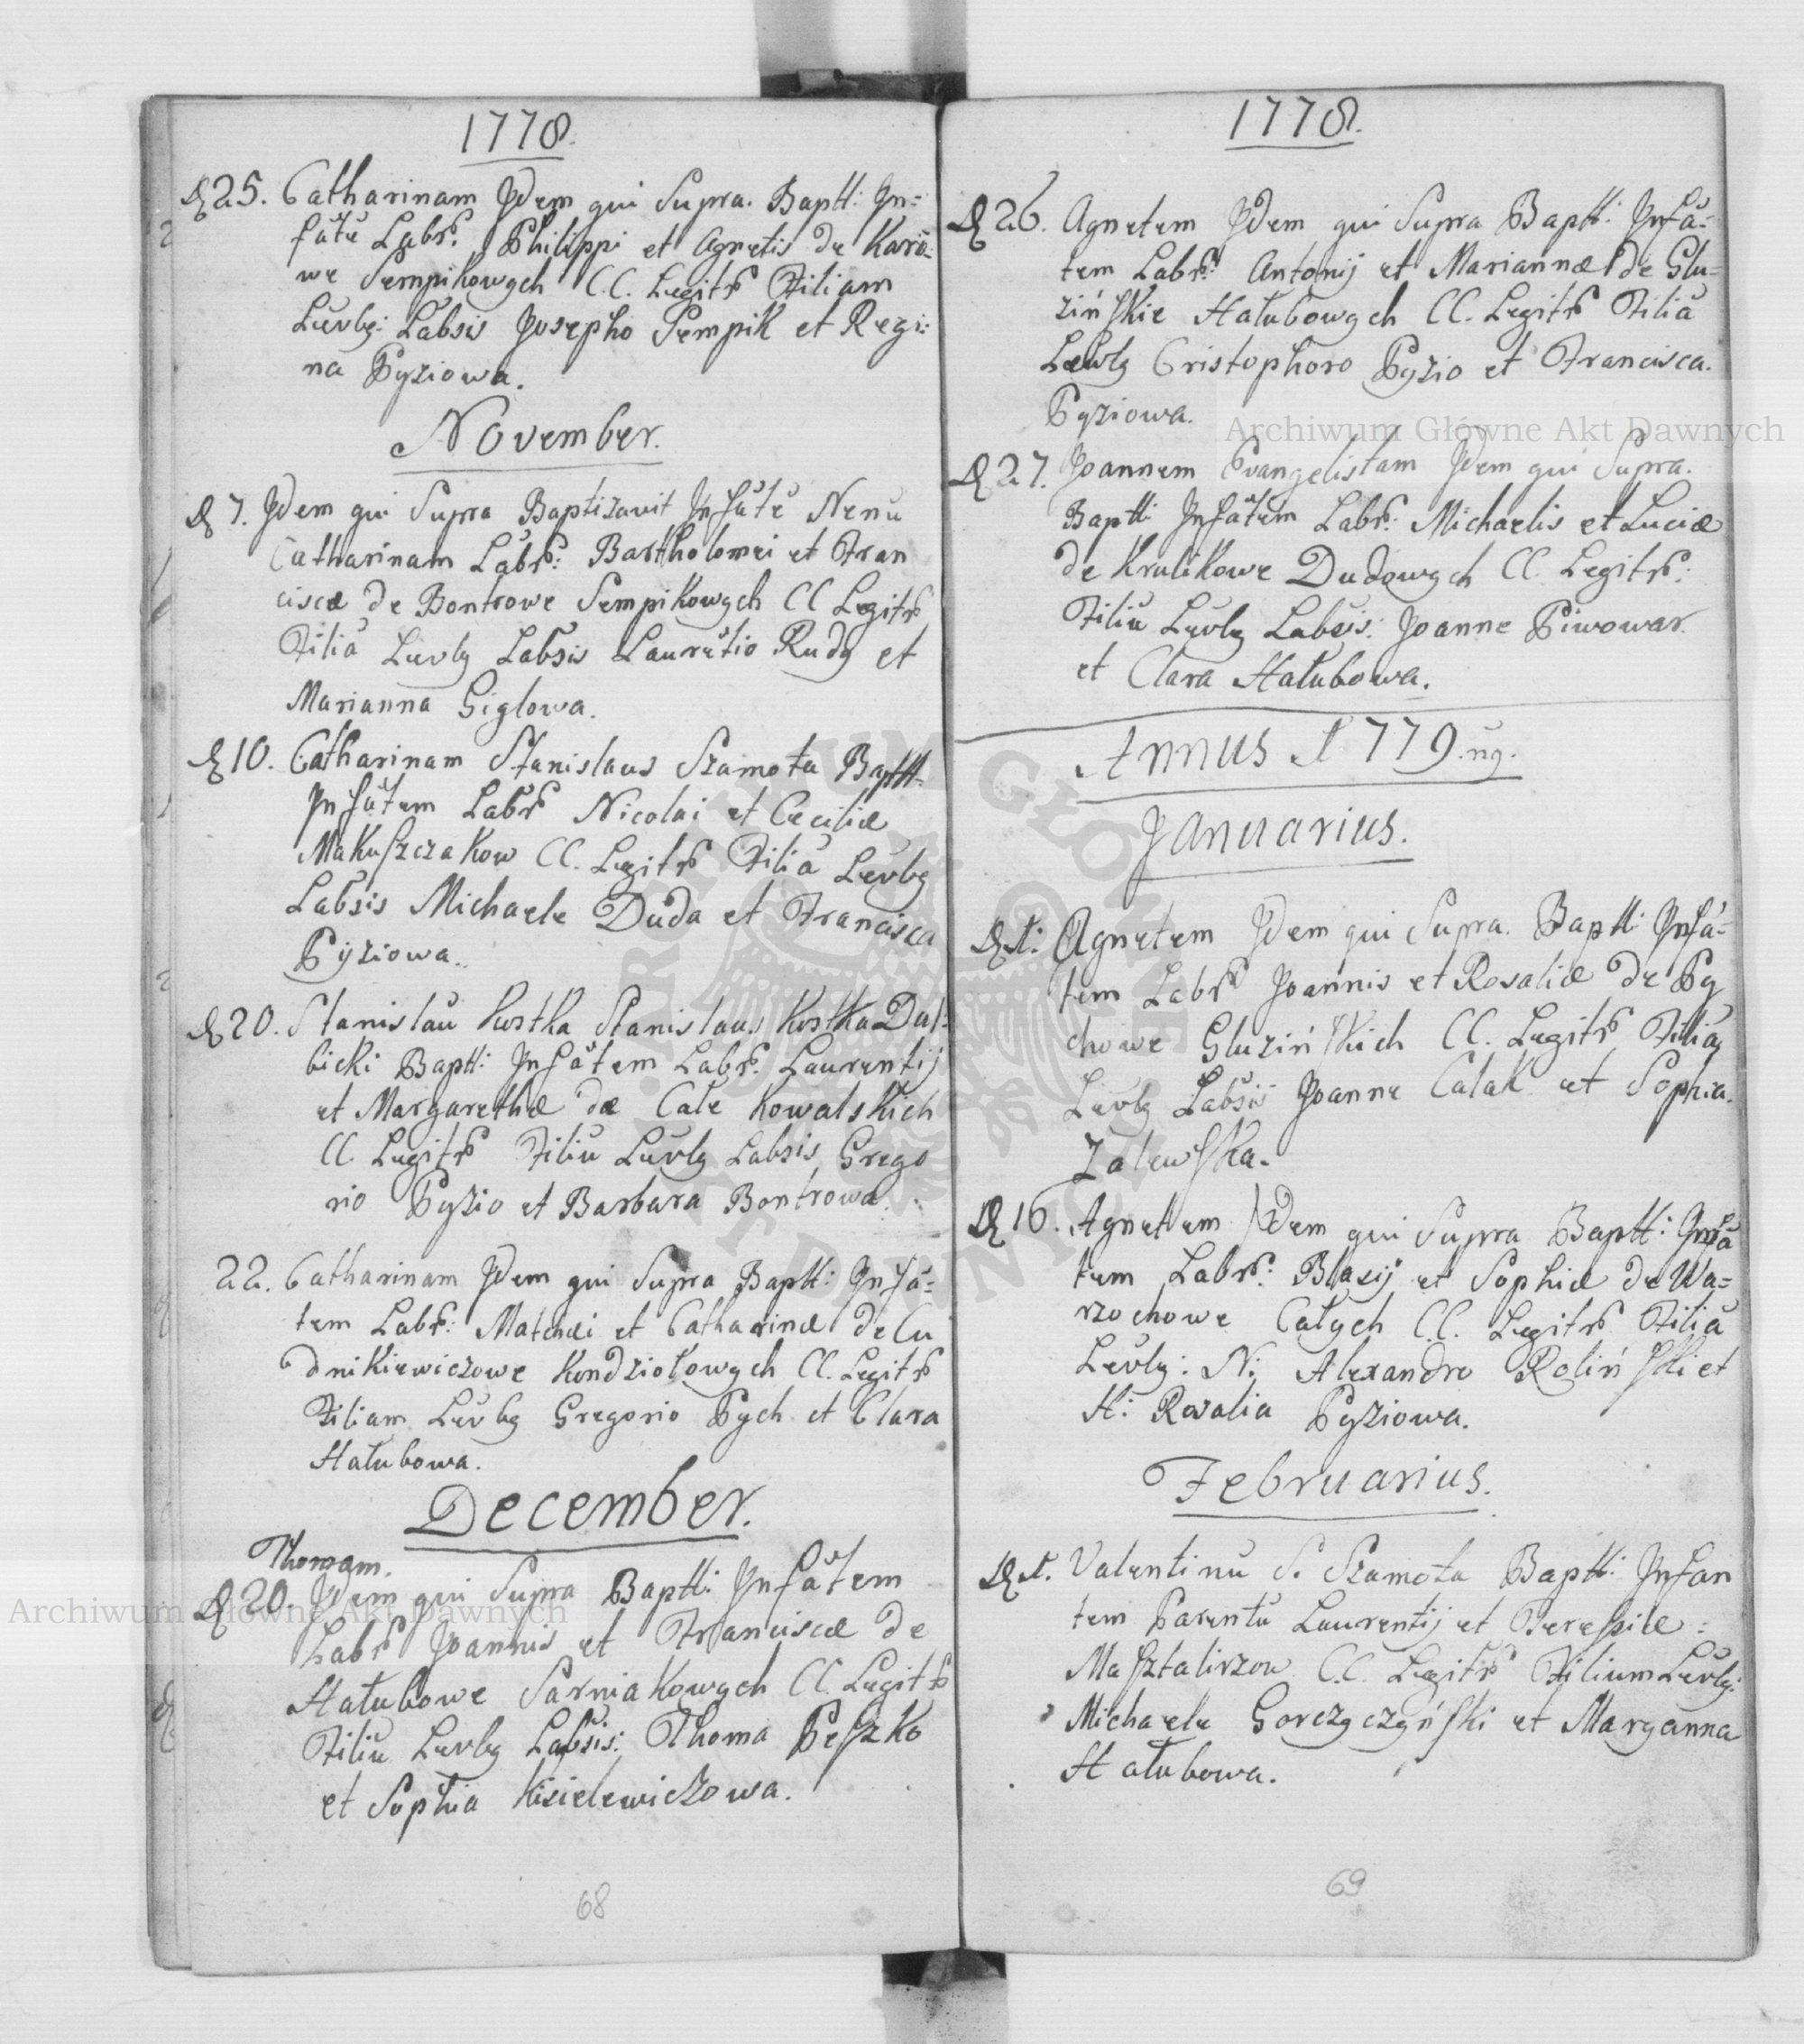 1778.
D 25. Catharinam Jdem qui Supra. Baptt: Jn=
fātē Labr: Philippi et Agnetis de Karo-
we Sempikowych C.C. Legitr Filiam
Levbg: Labsis Josepho Sempik et Regi:
na Pyziowa.
November.
D 7. Jdem qui Supra Baptizavit Jnfātē Nenu
Catharinam Labr: Bartholomei et Fran
ciscæ de Bontrowe Sempikowych CC Legitr
Filiā Levbg Labsis Laurētio Rudy et
Marianna Giglowa.
D 10. Catharinam Stanislaus Szamota Baptt:
Jnfātem Labr Nicolai et Ceciliæ
Makuszczakow CC. Legitr Filiā Levbg
Labsis Michaele Duda et Francisca
Pyziowa.
D 20. Stanislaū Kostka Stanislaus Kostka Dul-
bicki Baptt: Jnfātem Labr: Laurentij
et Margarethæ de Cale Kowalskich
CC. Legitr Filiū Levbg Labsis Grego
rio Pyzio et Barbara Bontrowa.
22. Catharinam Jdem qui Supra Baptt: Jnfā=
tem Labr: Mathæi et Catharinæ de Cu
dnikiewiczowe Kondziołowych CC. Legitr
Filiam Levbg Gregorio Pych et Clara
Hałubowa.
December.
Thomam.
D 20. Jdem qui Supra Baptt: Jnfātem
Labr Joannis et Franciscæ de
Hałubowe Sarniakowych CC. Legitr
Filiū Levbg Labsis: Thoma Peszko
et Sophia Kisielewiczowa.
68
1778.
D 26. Agnetem Jdem qui Supra Baptt: Jnfā=
tem Labr: Antonij et Mariannæ de Glu=
zińskie Hałubowych CC. Legitr Filiā
Levbg Cristophoro Pyzio et Francisca.
Pyziowa.
D 27. Joannem Evangelistam Jdem qui Supra.
Baptti Jnfātem Labr: Michaelis et Luciæ
de Krulikowe Dudowych CC. Legitr:
Filiū Levbg Labsis: Joanne Piwowar.
et Clara Hałubowa.
Annus 1779.ng.
Januarius.
D 1: Agnetem Jdem qui Supra. Baptt: Jnfā=
tem Labr Joannis et Rosaliæ de Py
chowe Gluzińskich CC. Legitr Filiā
Levbg Labsis Joanne Calak et Sophia.
Zalewska.
D 16. Agnetem Jdem qui Supra Baptt: Jnfā
tem Labr: Blasij et Sophiæ de Wa=
rzochowe Całych C.C. Legitr Filiā
Levbg: N: Alexandro Roliński et
H: Rosalia Pyziowa.
Februarius.
D 1. Valentinū S. Szamota Baptt: Jnfan
tem Parentū Laurentij et Teressiæ:
Masztalirzow C.C. Legitr Filium Levbg:
Michaele Gorczyczyński et Maryanna
Hałubowa.
69
Archiwum Główne Akt Dawnych
Archiwum Główne Akt Dawnych
ARCHIWUM GŁÓWNE AKT DAWNYCH